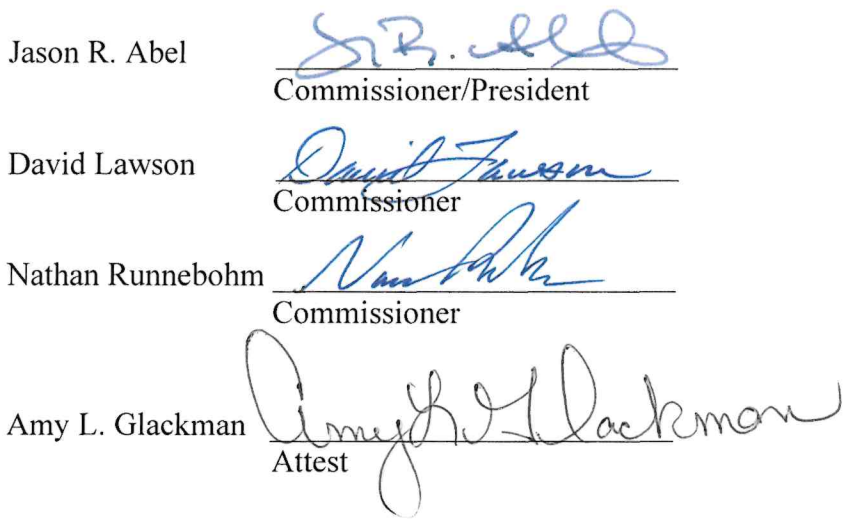 Jason R. Abel J R. Abel
Commissioner/President
David Lawson David Lawson
Commissioner
Nathan Runnebohm
Commissioner
Amy L. Glackman Amy L Glackman
Attest